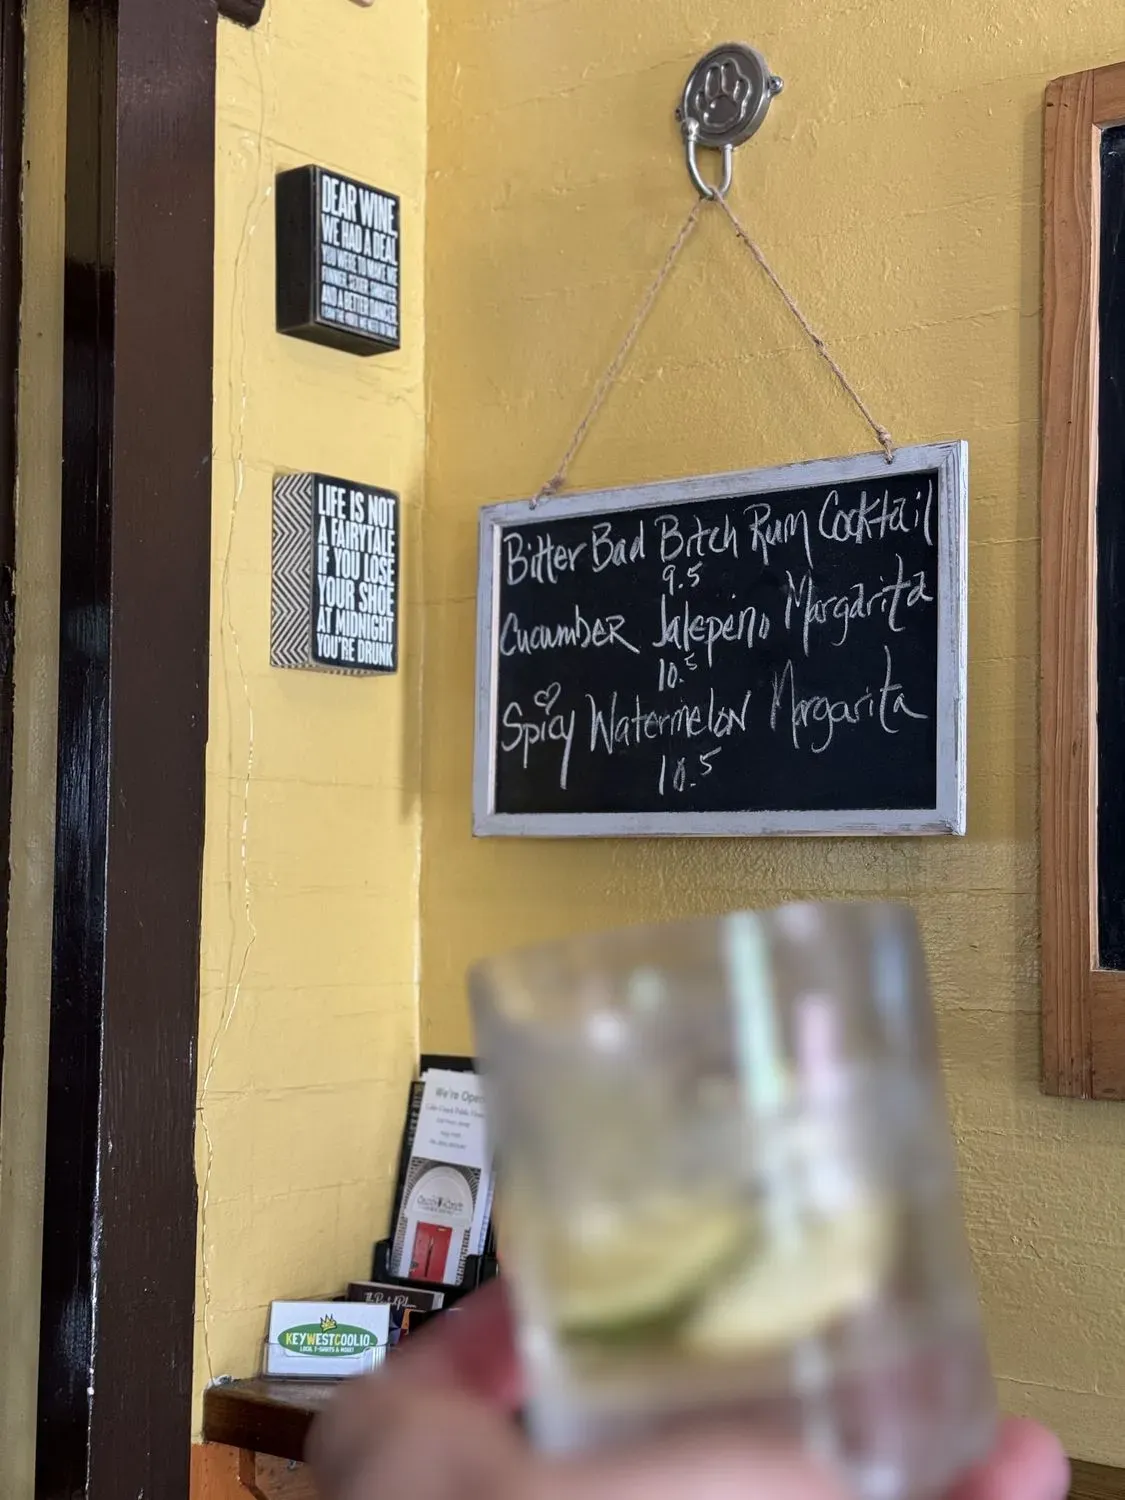 DEAR WINE,
WE HAD A DEAL.
YOU WERE TO MAKE ME
AND A BETTER DANCER
LIFE IS NOT
A FAIRYTALE
IF YOU LOSE
YOUR SHOE
AT MIDNIGHT
YOU'RE DRUNK
Bitter Bad Bitch Rum Cocktail
9.5
Cucumber Jalepeño Margarita
10.5
Spicy Watermelon Margarita
10.5
We're Open
KEYWESTCOOLIO
LOCAL T-SHIRTS & MORE!